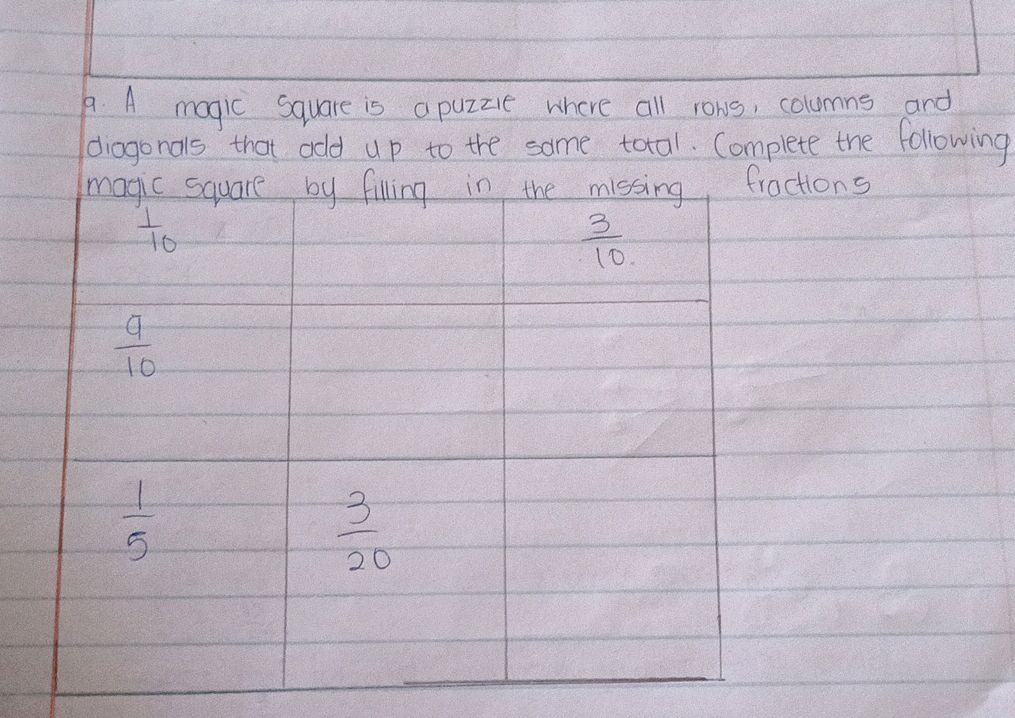 9. A magic square is a puzzle where all rows, columns and
diagonals that add up to the same total. Complete the following
magic square by filling in the missing fractions
1/10 3/10
9/10
1/5 3/20